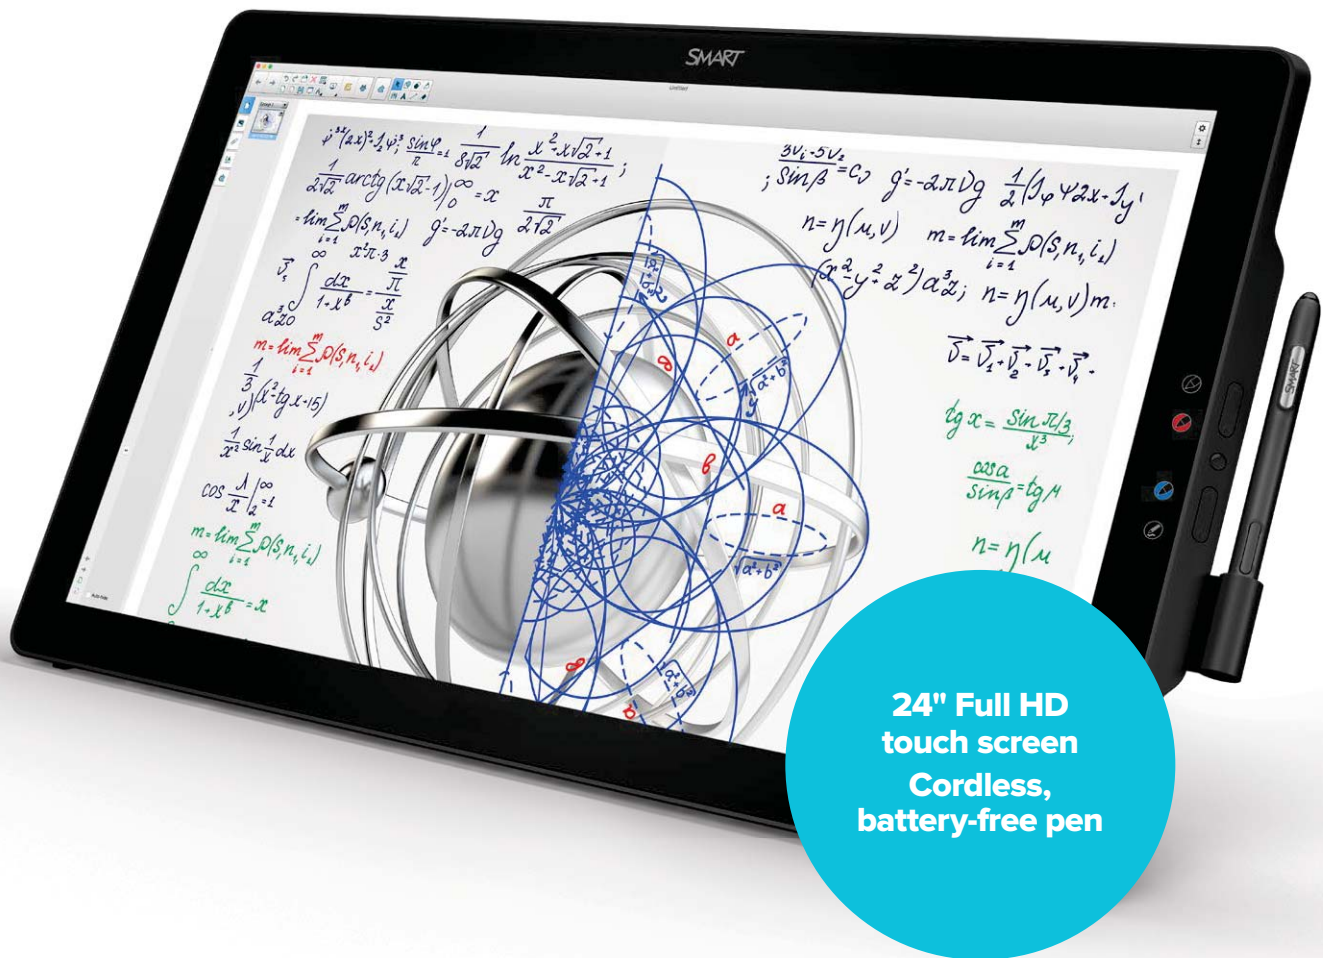 SMART
Untitled
1/(8√2) ln (x²+x√2+1)/(x²-x√2+1) ;
1/(2√2) arctg(x√2-1)|₀^∞ = x
π/(2√2)
= lim Σ_{i=1}^m ρ(S,n,i,)
g'=-2πVg
x²π·3
∫ dx/(1+x⁶) = (x/π)/(x/S²)
m=lim Σ_{i=1}^m ρ(S,n,i,)
1/3
(x²-tgx+15)
1/x² sin 1/x dx
cos λ/x |₂^∞ =1
m=lim Σ_{i=1}^m ρ(S,n,i,)
∫^∞ dx/(1+x⁶) = x
; (3V₁-5V₂)/sinβ = C
g'=-2πVg
n=η(μ,ν)
m=lim Σ_{i=1}^m ρ(S,n,i,)
(x²-y²+z²)a³z; n=η(μ,ν)m
V⃗=V⃗₁+V⃗₂+V⃗₃+V⃗₄
tg x = sin π/3 / x³ ;
cosa/sinβ = tgμ
n=η(μ
√a²+b²
a
√a²+b²
в
a
√a²+b²
√a²+b²
SMART
24" Full HD
touch screen
Cordless,
battery-free pen